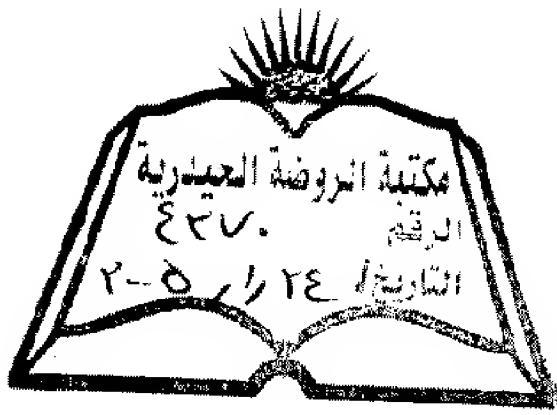 مكتبة الروضة الحيدرية
الرقم ٤٢٧٠
التاريخ / ٢٤ / ١ / ٢٠٠٥